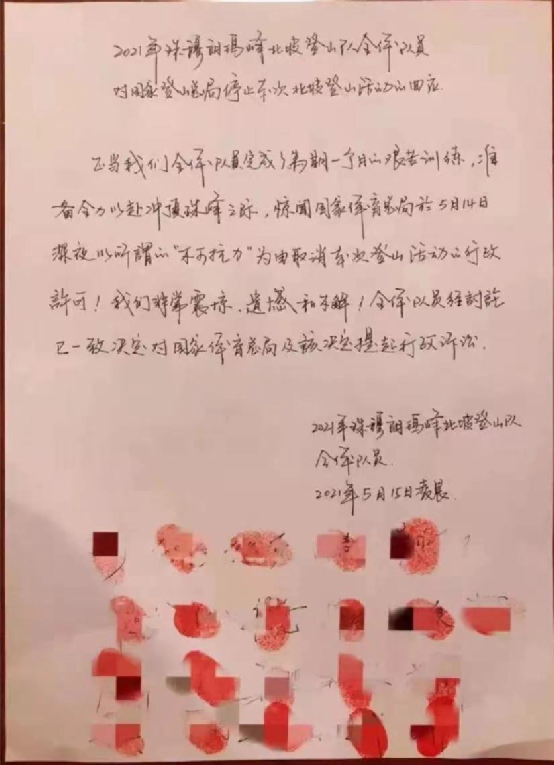 2021年珠穆朗瑪峰北坡登山队全体队员
对国家登山总局停止本次北坡登山活动的回应
正当我们全体队员完成了为期一个月的艰苦训练，准
备全力以赴冲顶珠峰之际，惊闻国家体育总局於5月14日
深夜以所謂的“不可抗力”为由取消本次登山活动的行政
許可！我们非常震惊、遺憾和不解！全体队员经討論
已一致决定对国家体育总局及該决定提起行政诉讼。
2021年珠穆朗瑪峰北坡登山队
全体队员
2021年5月15日凌晨